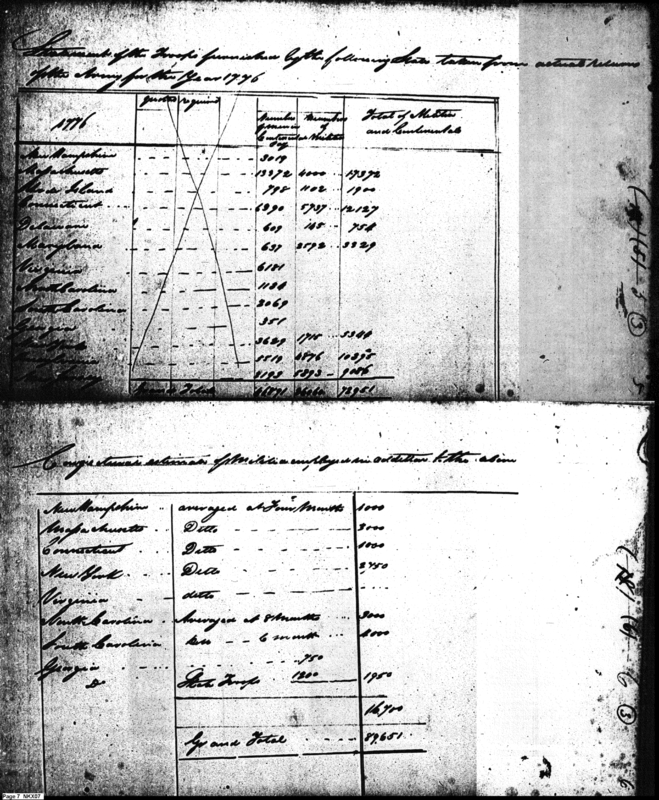 Statement of the Troops furnished by the following States taken from actual returns
of the Army for the Year 1776
1776 quotas required Number of men in Continental Pay Number of Militia Total of Militia and Continentals
New Hampshire 3019
Massachusetts 13372 4000 17372
Rhode Island 798 1102 1900
Connecticut 6390 5737 12127
Delaware 609 145 754
Maryland 637 2592 3329
Virginia 6181
North Carolina 1134
South Carolina 2069
Georgia 351
New York 3629 1715 5344
5519 4876 10395
3193 5893 9086
Grand Total 46891 26060 72951
Conjectural estimate of Militia employed in addition to the above
New Hampshire averaged at Four Months 1000
Massachusetts Ditto 3000
Connecticut Ditto 1000
New York Ditto 2750
Virginia ditto
North Carolina Averaged at 8 Months 3000
South Carolina 6 months 4000
Georgia 750
& State Troops 1200 1950
16,700
Grand Total 89,651
(181) 5 (3)
6 (3)
6
Page 7 NKX07